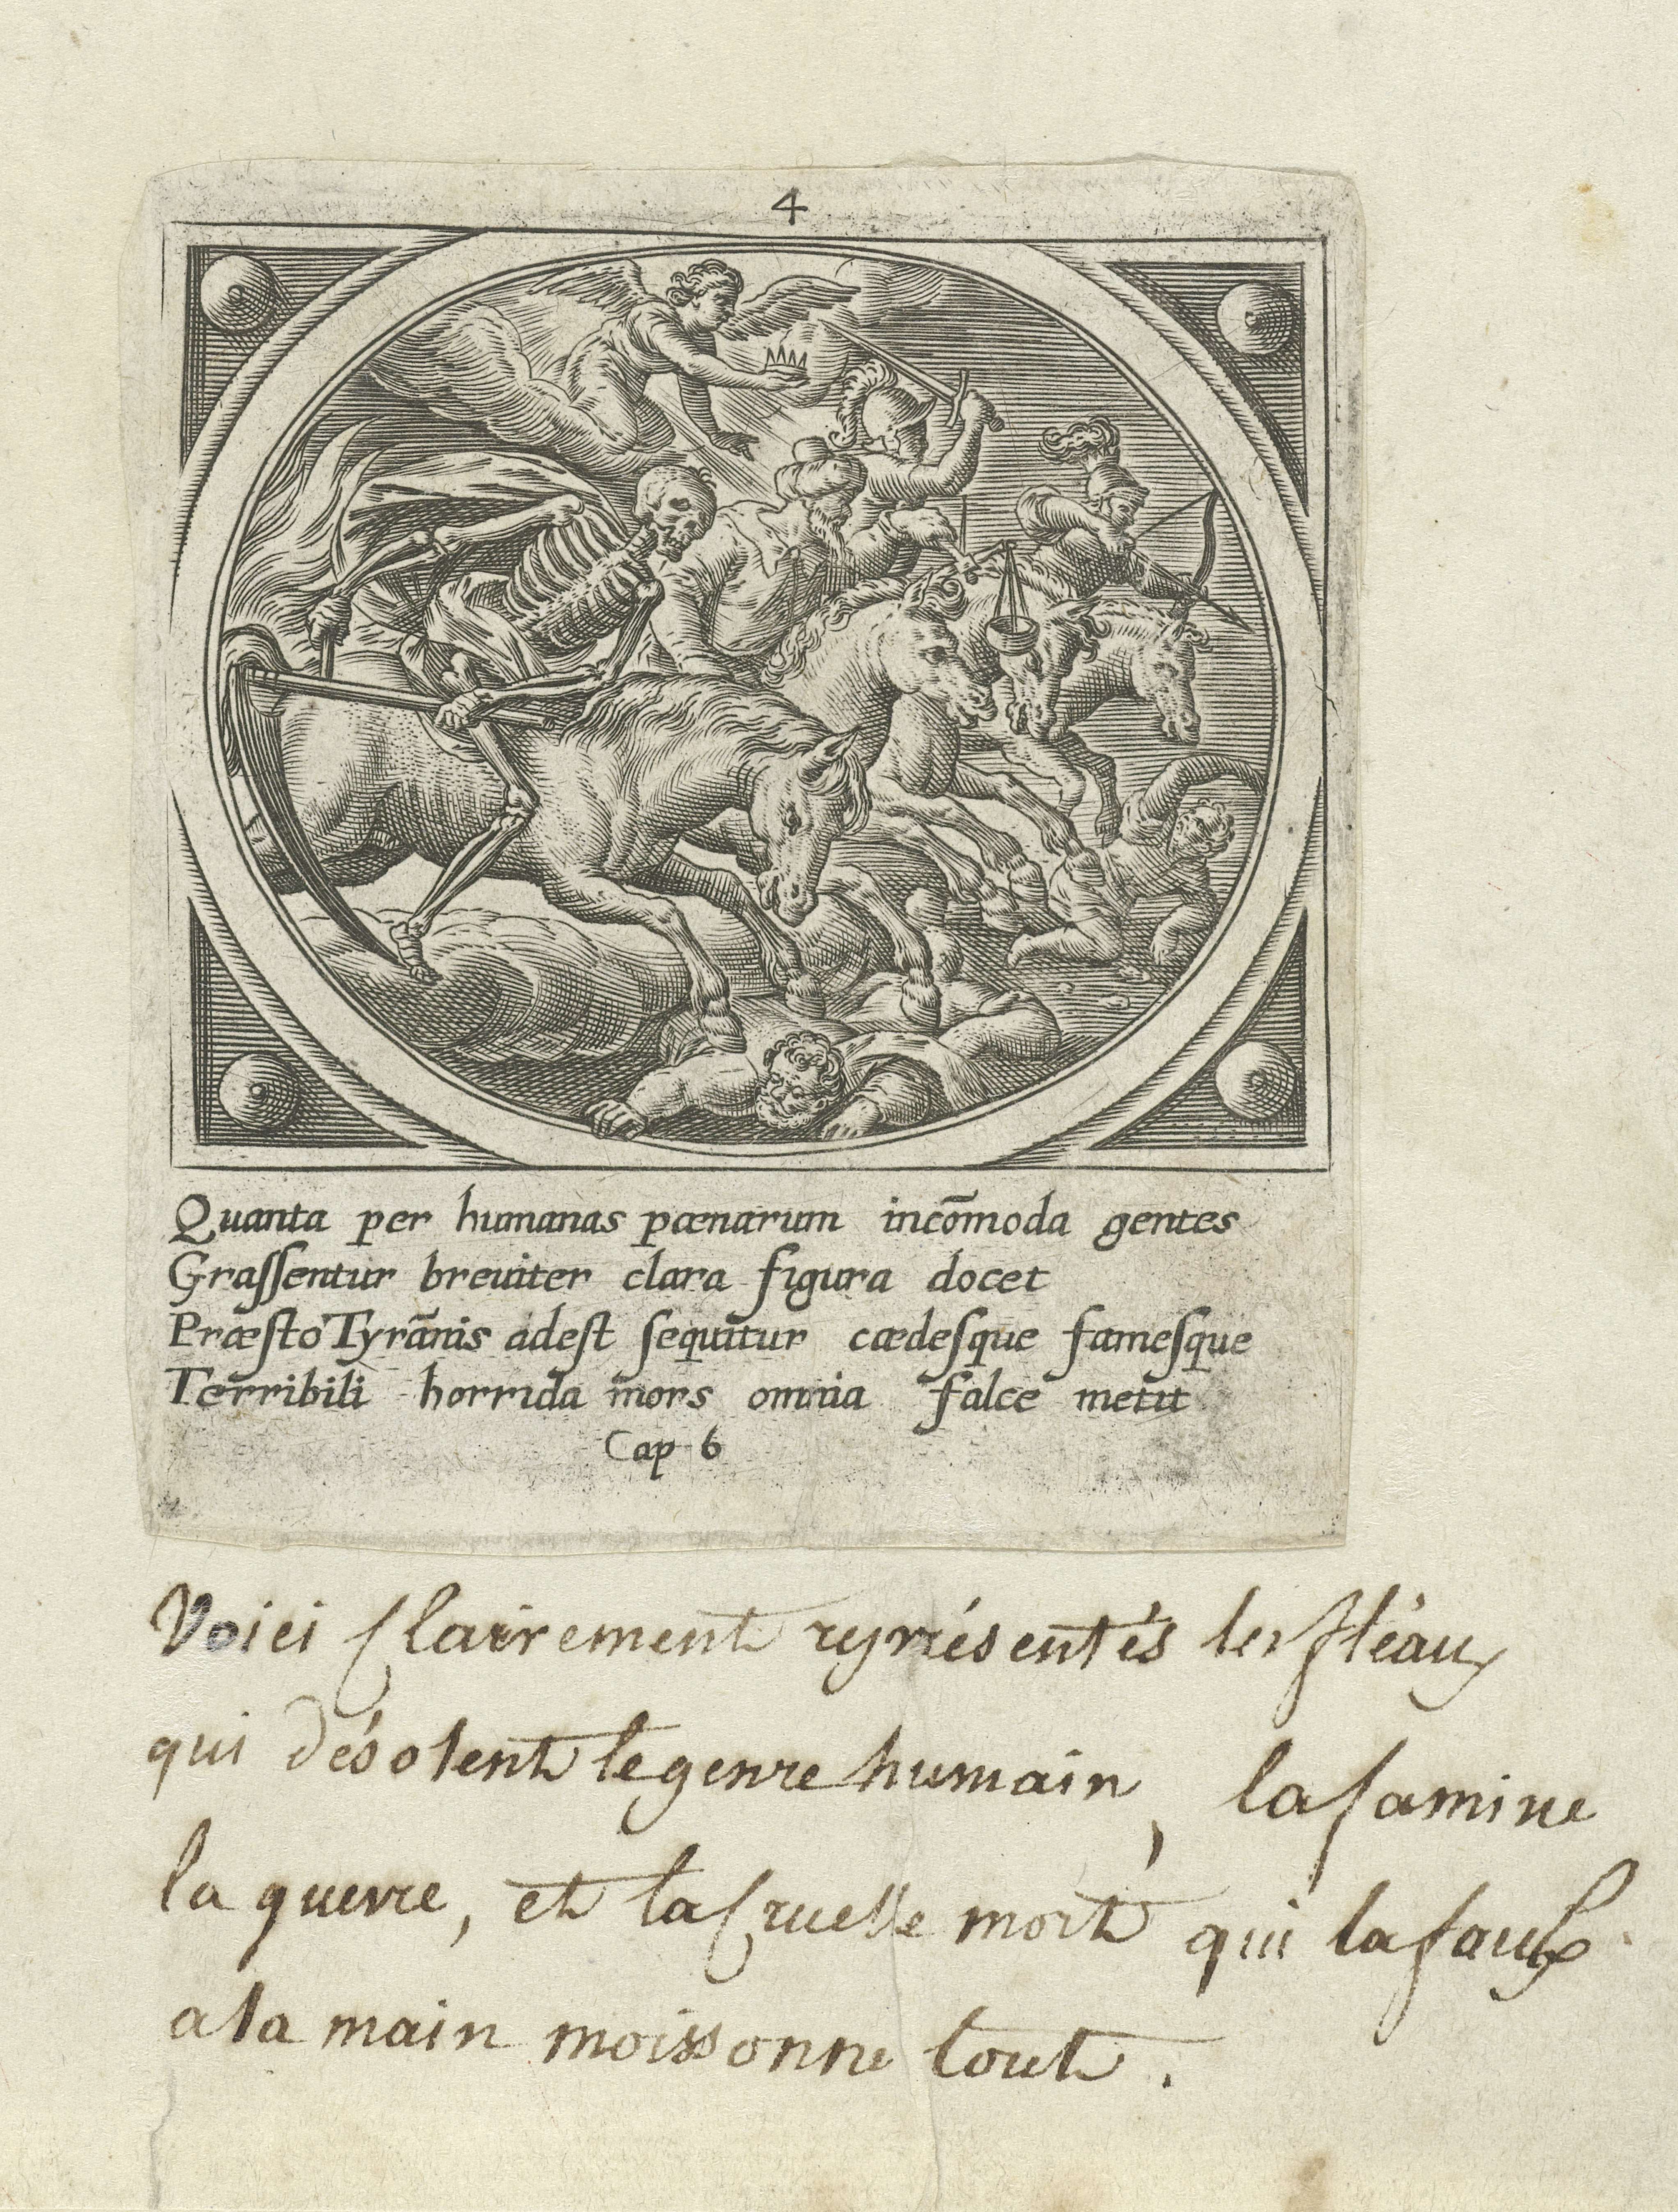 4
Quanta per humanas pœnarum incōmoda gentes
Graſſentur breuiter clara figura docet
Præſto Tyrānis adeſt ſequitur cædeſque fameſque
Terribili horrida mors omnia falce metit
Cap 6
Voici clairement représentés les fléaux
qui désolent le genre humain, la famine
la guerre, et la cruelle mort qui la faulx
a la main moissonne tout.